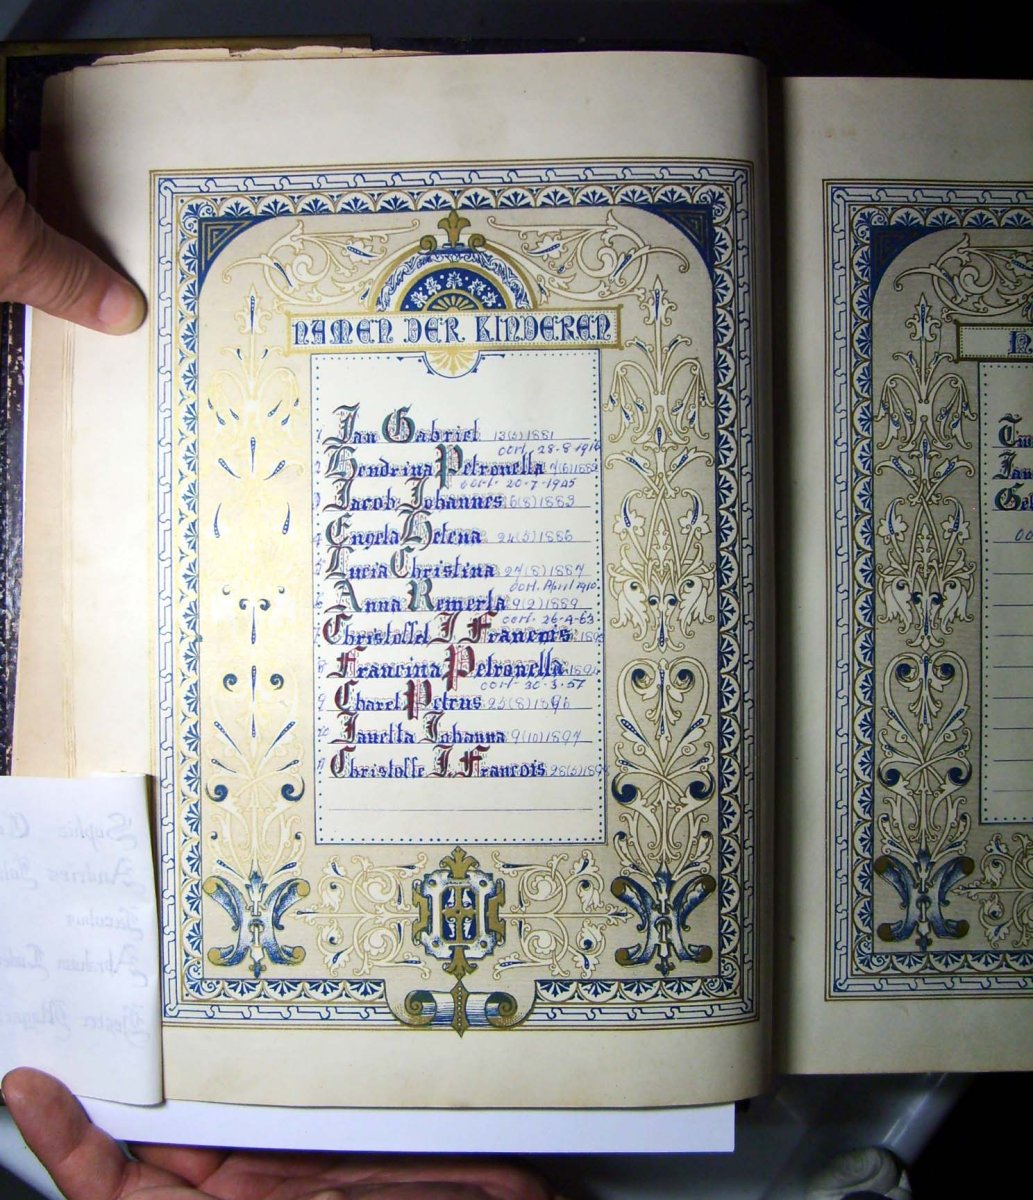 NAMEN DER KINDEREN
1 Jan Gabriel 13(5)1881
oorl. 28-8-1916
2 Hendrina Petronella
oorl. 20-7-1945
3 Jacob Johannes 16(8)1883
4 Engela Helena 24(5)1886
5 Lucia Christina 27(8)1887
oorl. April 1910
6 Anna Remerta 9(2)1889
oorl. 26-4-63
7 Christoffel J. Francois
8 Francina Petronella
oorl. 30-3-57
9 Charel Petrus 25(8)1896
10 Janetta Johanna 9(10)1897
11 Christoffe J. Francois